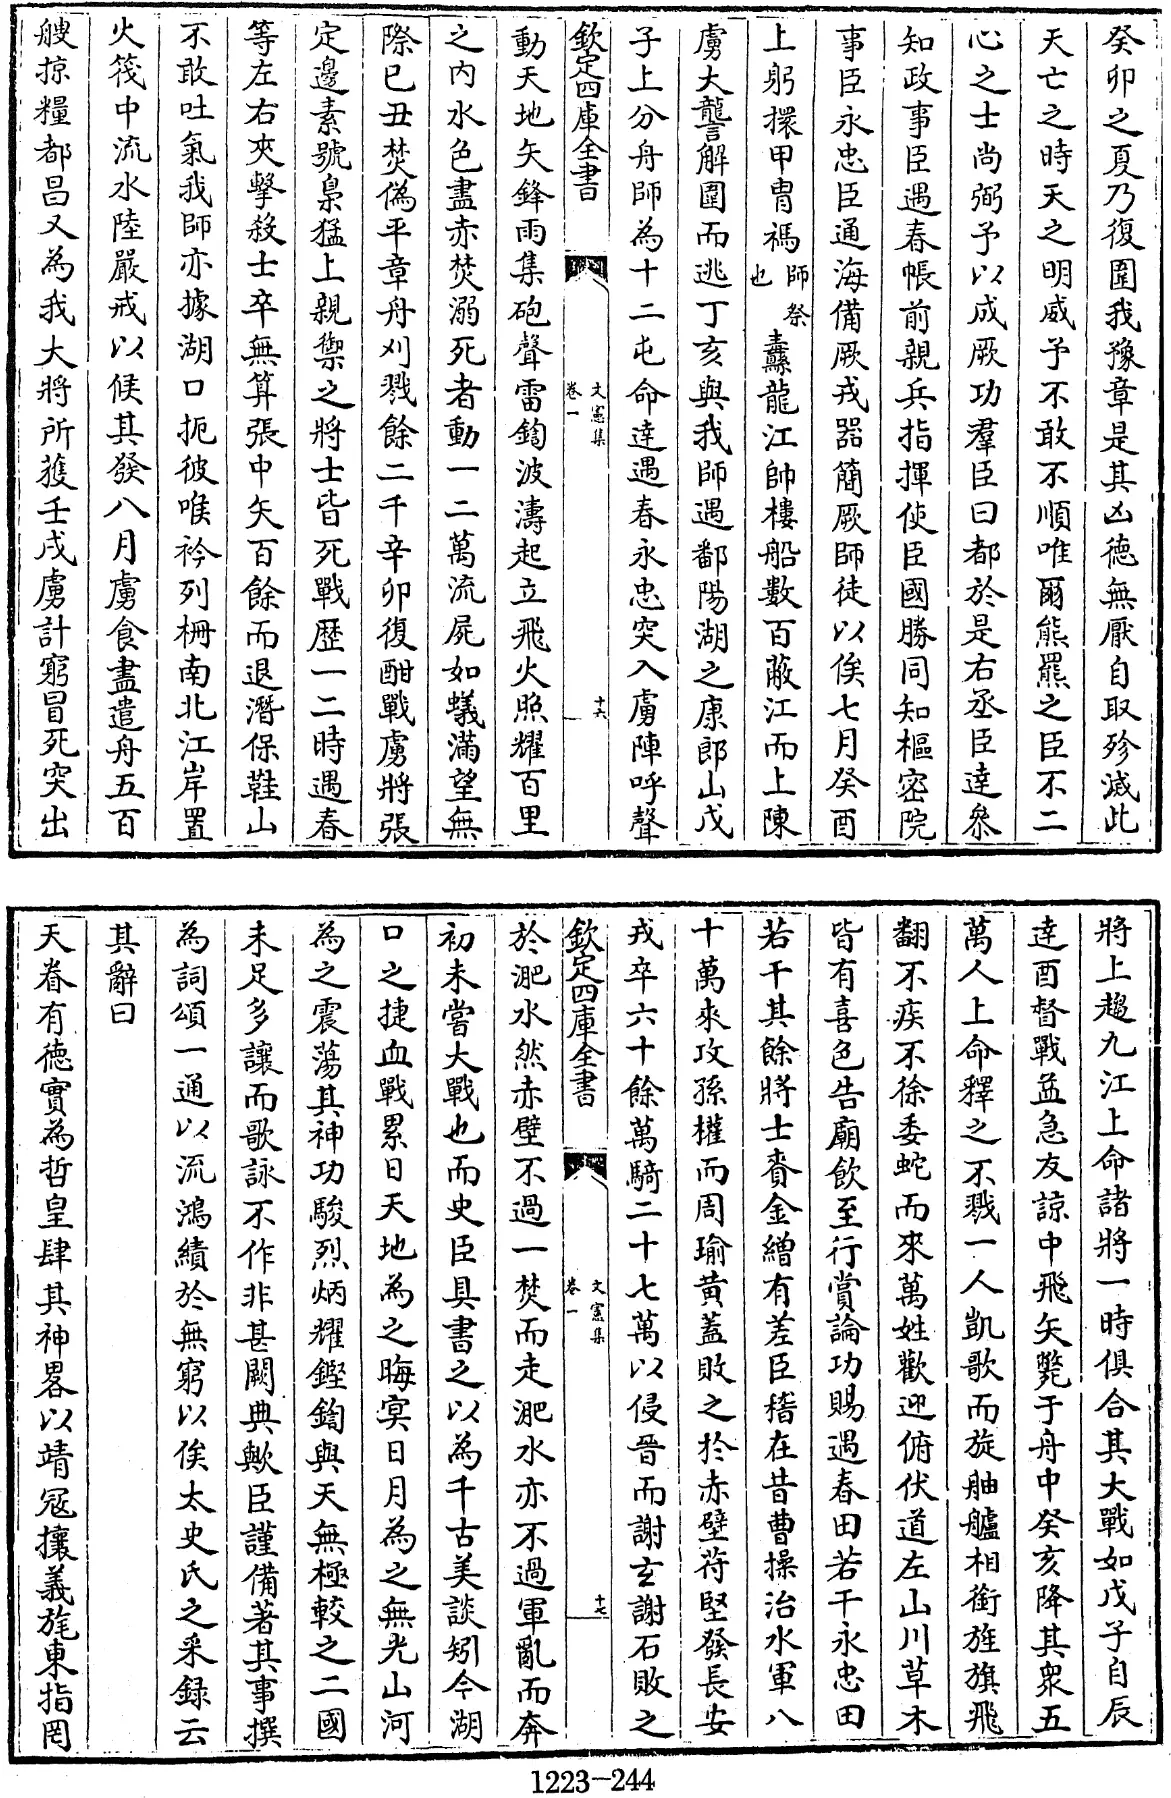 癸卯之夏乃復圍我豫章是其凶徳無厭自取殄滅此
天亡之時天之明威予不敢不順唯爾熊羆之臣不二
心之士尚弼予以成厥功羣臣曰都於是右丞臣達叅
知政事臣遇春帳前親兵指揮使臣國勝同知樞密院
事臣永忠臣通海備厥戎器簡厥師徒以俟七月癸酉
上躬擐甲冑禡師祭也纛龍江帥樓船數百蔽江而上陳
虜大讋解圍而逃丁亥與我師遇鄱陽湖之康郎山戊
子上分舟師為十二屯命達遇春永忠突入虜陣呼聲
欽定四庫全書
文憲集
卷一
十六
動天地矢鋒雨集砲聲雷鍧波濤起立飛火照耀百里
之内水色盡赤焚溺死者動一二萬流屍如蟻滿望無
際已丑焚偽平章舟刈戮餘二千辛卯復酣戰虜將張
定邊素號梟猛上親禦之將士皆死戰歴一二時遇春
等左右夾擊殺士卒無算張中矢百餘而退潛保鞵山
不敢吐氣我師亦據湖口扼彼喉衿列栅南北江岸置
火筏中流水陸嚴戒以候其發八月虜食盡遣舟五百
艘掠糧都昌又為我大將所獲壬戌虜計窮冒死突出
將上趨九江上命諸將一時俱合其大戰如戊子自辰
達酉督戰益急友諒中飛矢斃于舟中癸亥降其衆五
萬人上命釋之不戮一人凱歌而旋舳艫相銜旌旗飛
翻不疾不徐委蛇而來萬姓歡迎俯伏道左山川草木
皆有喜色告廟飲至行賞論功賜遇春田若干永忠田
若干其餘將士賚金繒有差臣稽在昔曹操治水軍八
十萬來攻孫權而周瑜黄蓋敗之於赤壁苻堅發長安
戎卒六十餘萬騎二十七萬以侵晉而謝玄謝石敗之
欽定四庫全書
文憲集
卷一
十七
於淝水然赤壁不過一焚而走淝水亦不過軍亂而奔
初未嘗大戰也而史臣具書之以為千古美談矧今湖
口之捷血戰累日天地為之晦冥日月為之無光山河
為之震蕩其神功駿烈炳耀鏗鍧與天無極較之二國
未足多讓而歌詠不作非甚闕典歟臣謹備著其事撰
為詞頌一通以流鴻績於無窮以俟太史氏之采録云
其辭曰
天眷有徳實為哲皇肆其神畧以靖冦攘義旄東指罔
1223-244